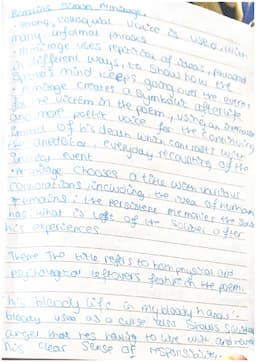 Remains Simon Armitage.
• Strong, colloquial voice is used, with
many informal phrases
• Armitage uses repetition of ideas, phrases
in different ways, to show how the
mind keeps going over the event
• Armitage creates a symbolic afterlife
for the victim in the poem, using an
and more poetic voice for the continuing
impact of his death which contrasts with
the anecdotal, everyday recounting of the
event
• Armitage chooses a title with various
connotations, including the idea of human
remains; the persistent memories the
has; what is left of the soldier after
his experiences.
Theme The title refers to both physical and
psychological leftovers from the poem.
'his bloody life in my bloody hands' -
bloody used as a curse also shows
anger that has having to live with and
his clear sense of responsibility.